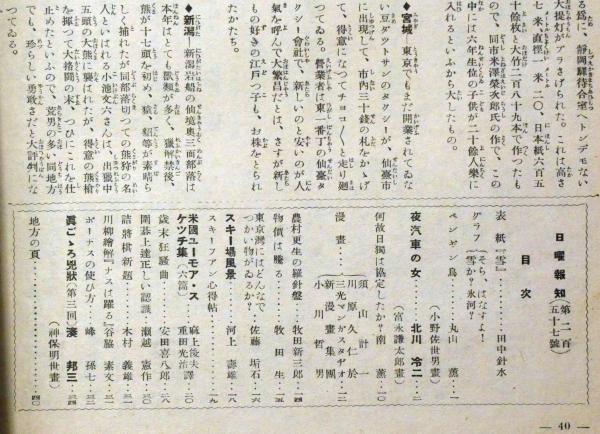 る爲に、靜岡驛待合室へトンデモない
大提灯がブラさげられた。これは高さ
七米、直徑一米二〇、日本紙六百五
十餘枚と大竹二百八十九本で作つたも
ので、同市米澤榮次郎氏の作で、この
中には六年生位の子供が二十餘人樂に
入れるといふから大したもの。
◆宮城 東京でもまだ開業されてゐな
い豆ダツトサンのタクシーが、仙臺市
に出現して、市内三十錢の札をかゝげ
て、得意になつてチヨコ〳〵と走り廻
つてゐる。營業者は東一番丁の仙臺タ
クシー會社で、新しいのと安いのが人
氣を呼んで大繁昌だとは、さすが新し
もの好きの江戸つ子も、お株をとられ
たかたち。
◆新潟 新潟岩船の仙境奧三面部落は
本年はとても獸類が多く、獵解禁後、
熊が十七頭を初め、猿、貂等が素晴ら
しく捕れたが同部落切つての熊狩の名
人といはれる小池文六さんは、出獵中
五頭の大熊に襲はれたが、得意の熊槍
を揮つて大格鬪の末、つひにこれを仕
止めたといふので、荒男の多い同地方
でも、珍らしい勇敢さだと大評判にな
つてゐる。
日曜報知(第二百五十七號)
目次
表紙『雪』………田中針水
グラフ(そら、はなすよ!雪か?氷河?)
ペンギン鳥………丸山薫…一
(小野佐世男畫)
夜汽車の女………北川冷二…二
(富永謙太郎畫)
何故日獨は協定したか?南薫…一〇
漫畫…須山計一 川原久仁於 三光マンガスタヂオ 新漫畫集團 小川哲男…一二
農村更生の羅針盤…牧田新三郎…一四
物價は騰る………牧田生…一五
東京灣にはどんなでつかい物がゐるか?…佐藤垢石…一六
スキー場風景………河上壽雄…一八
スキーフアン心得帖………一九
米國ユーモア・スケツチ集(六篇)…麻上俊夫譯 重田光治畫…二〇
歳末狂騒曲………安田喜八郎…二八
圍碁上達正しい認識…瀬越憲作…三〇
詰將棋新題………木村義雄…三一
川柳繪解『ナスは躍る』谷脇素文…三二
ボーナスの使ひ方……峰孫七…三三
眞ごゝろ兇狀(第三回)湊邦三…三四
(神保朋世畫)
地方の頁………四〇
— 40 —